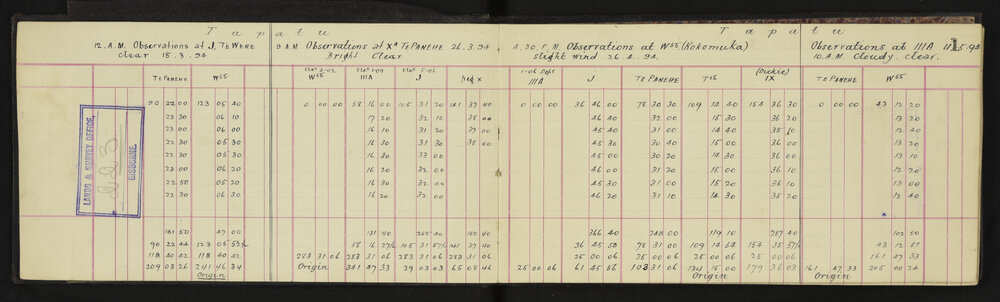 Tapatu
Tapatu
12. A.M. Observations at J, TE WERE
clear 15.3.94
9 A.M Observations at Xᴬ TE PANEHE 26.3.94
Bright Clear
4.30. P.M. Observations at W⁵⁵ (Kokomuka)
slight wind 26.4.94
Observations at IIIA 11.5.94
10.A.M. Cloudy. clear.
TE PANEHE W⁵⁵
W⁵⁵ IIIA J Peg X
1-06 Dept
IIIA J TE PANEHE T⁵⁶ (Dickie) IX
TE PANEHE W⁵⁵
90 22 00 123 05 40 0 00 00 58 16 00 105 31 20 141 37 40 0 00 00 36 46 00 78 30 30 109 14 40 154 36 30 0 00 00 43 12 20
23 30 06 10 17 20 32 10 38 00 46 40 32 00 15 30 36 20 13 20
23 00 06 00 16 10 31 20 37 00 45 40 31 00 14 40 35 10 12 40
22 30 05 30 16 30 31 30 38 00 45 30 30 40 15 00 36 00 13 10
22 30 05 30 16 30 33 00 45 00 30 20 14 30 36 00 13 10
23 00 06 20 16 20 32 00 46 40 31 20 15 00 36 10 12 20
22 50 05 20 16 30 32 00 45 30 31 10 15 20 36 10 13 00
22 30 06 30 16 20 32 00 46 40 31 00 14 30 35 20 12 40
LANDS & SURVEY OFFICE,
223
GISBORNE.
181 50 47 00 131 40 255 40 150 40 366 40 248 00 119 10 287 40 102 50
90 22 44 123 05 52½ 58 16 27½ 105 31 57½ 141 37 40 36 45 50 78 31 00 109 14 54 154 35 57½ 43 12 51
118 40 42 118 40 42 283 31 06 283 31 06 283 31 06 283 31 06 25 00 06 25 00 06 25 00 06 25 00 06 161 47 33
209 03 26 241 46 34 Origin 341 47 33 29 03 03 65 08 46 25 00 06 61 45 56 103 31 06 134 15 00 179 36 03 161 47 33 205 00 24
Origin Origin Origin